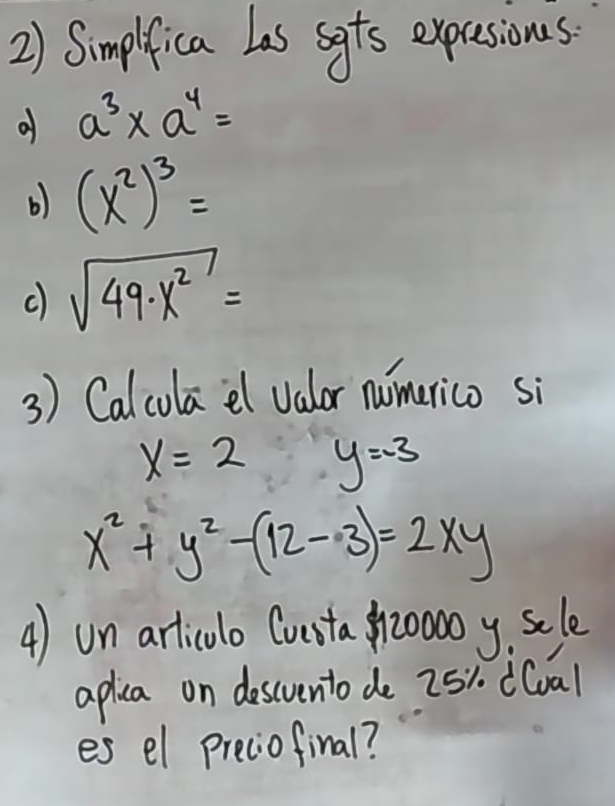 2) Simplifica Las sgts expresiones:
a) a³ x a⁴ =
b) (x²)³ =
c) √49·x² =
3) Calcula el valor númerico si
x = 2 y=-3
x² + y² -(12-3)= 2xy
4) un articulo Cuesta $120000 y se le
aplica un descuento de 25% ¿Cuál
es el precio final?